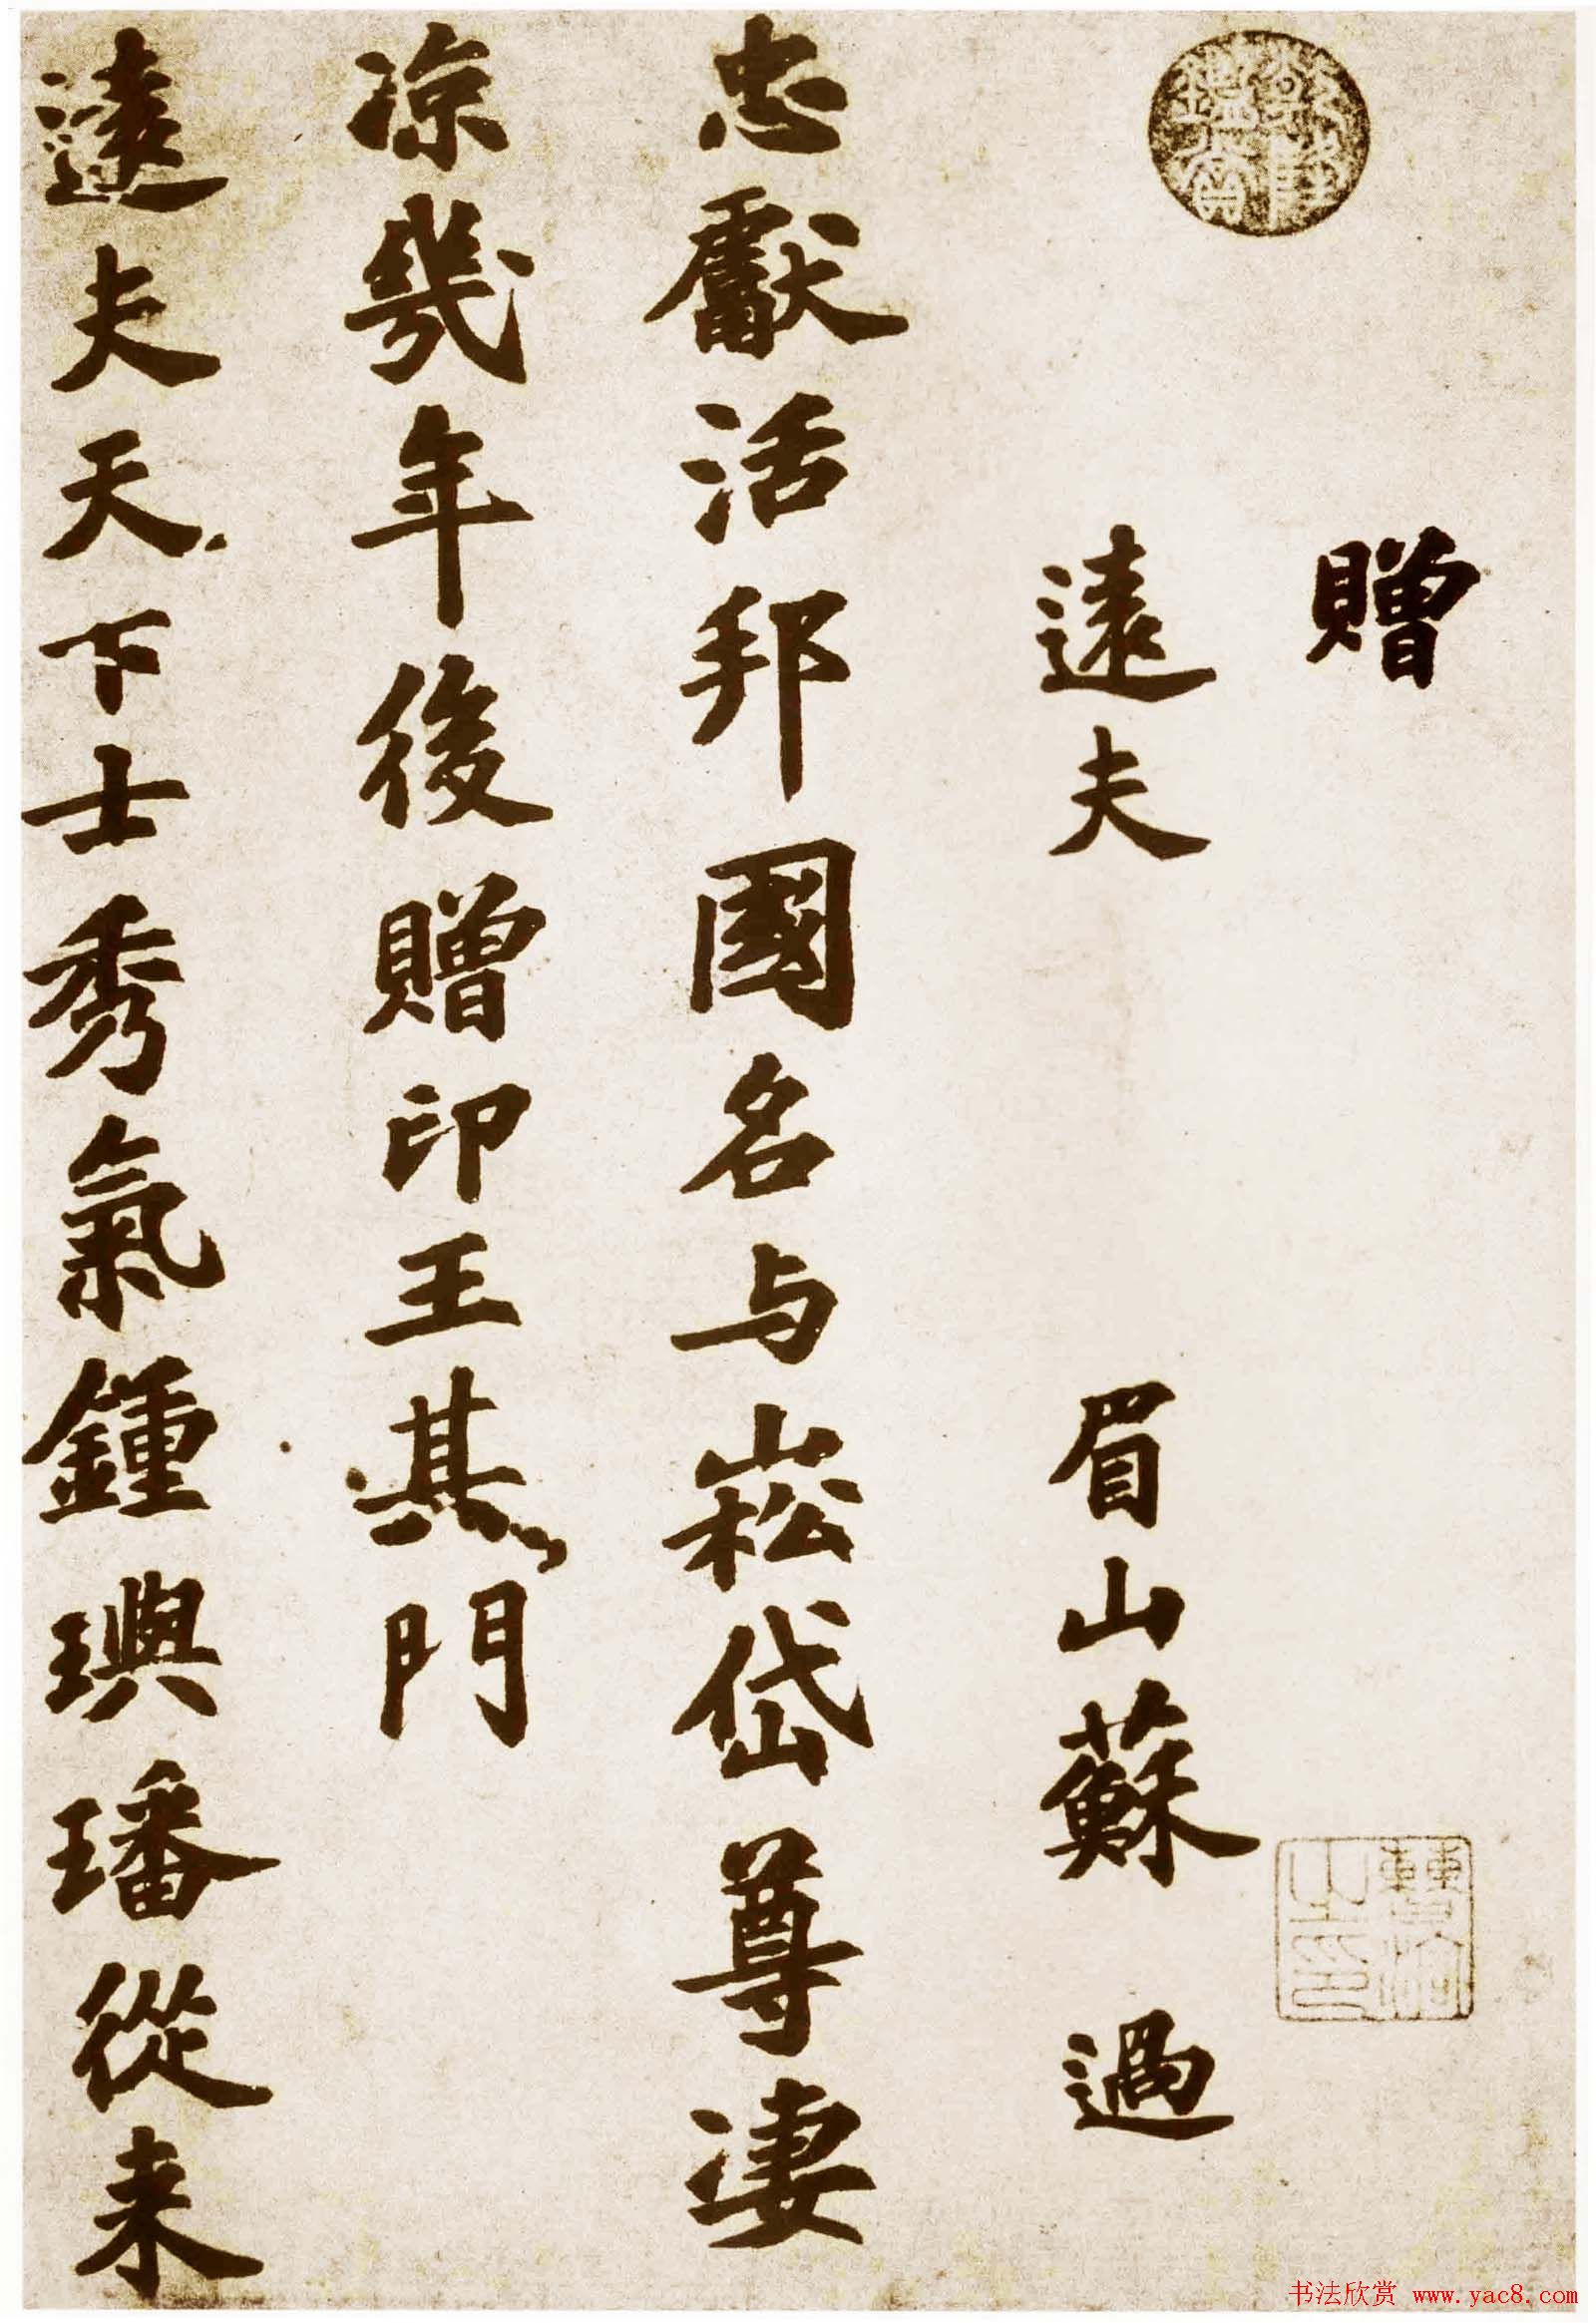 贈
遠夫
眉山蘇過
忠獻活邦國名与崧岱尊凄
凉幾年後贈印王其門
遠夫天下士秀氣鍾璵璠從来
乾隆鑑賞
之印
书法欣赏 www.yac8.com